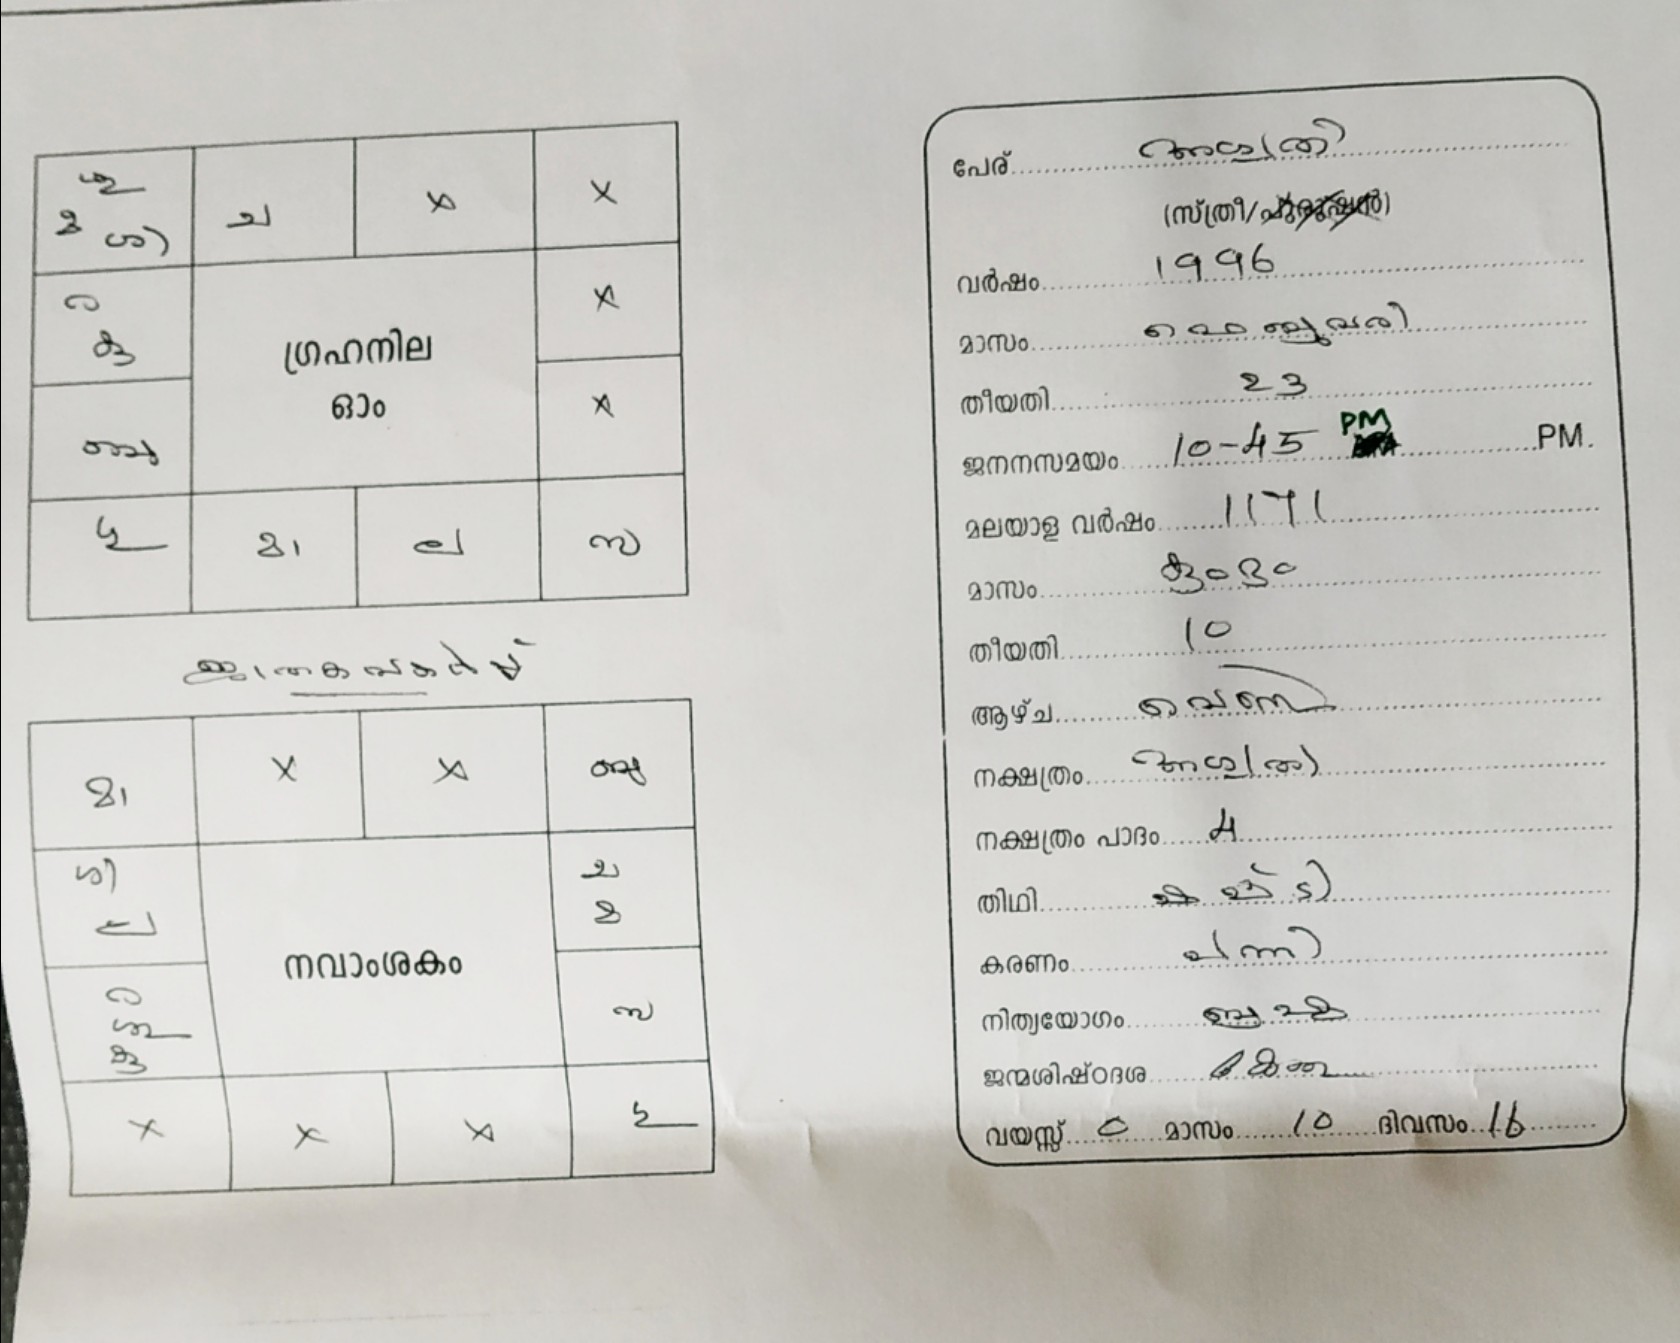 ശു
മ ശി
ച
x
x
ര
കു
ഗ്രഹനില
ഓം
x
ബു
x
ഗു
മാ
ല
സ
ജാതകപകർപ്പ്
മാ
x
x
ബു
ശി
ല
നവാംശകം
ച
മ
ര
ശു
കു
സ
x
x
x
ഗു
പേര് അശ്വതി
(സ്ത്രീ/പുരുഷൻ)
വർഷം 1996
മാസം ഫെബ്രുവരി
തീയതി 23
ജനനസമയം 10-45 PM PM.
മലയാള വർഷം 1171
മാസം കുംഭം
തീയതി 10
ആഴ്ച വെള്ളി
നക്ഷത്രം അശ്വതി
നക്ഷത്രം പാദം 4
തിഥി ഷഷ്ടി
കരണം പന്നി
നിത്യയോഗം ബ്രഹ്മ
ജന്മശിഷ്ഠദശ കേതു
വയസ്സ് 0 മാസം 10 ദിവസം 16